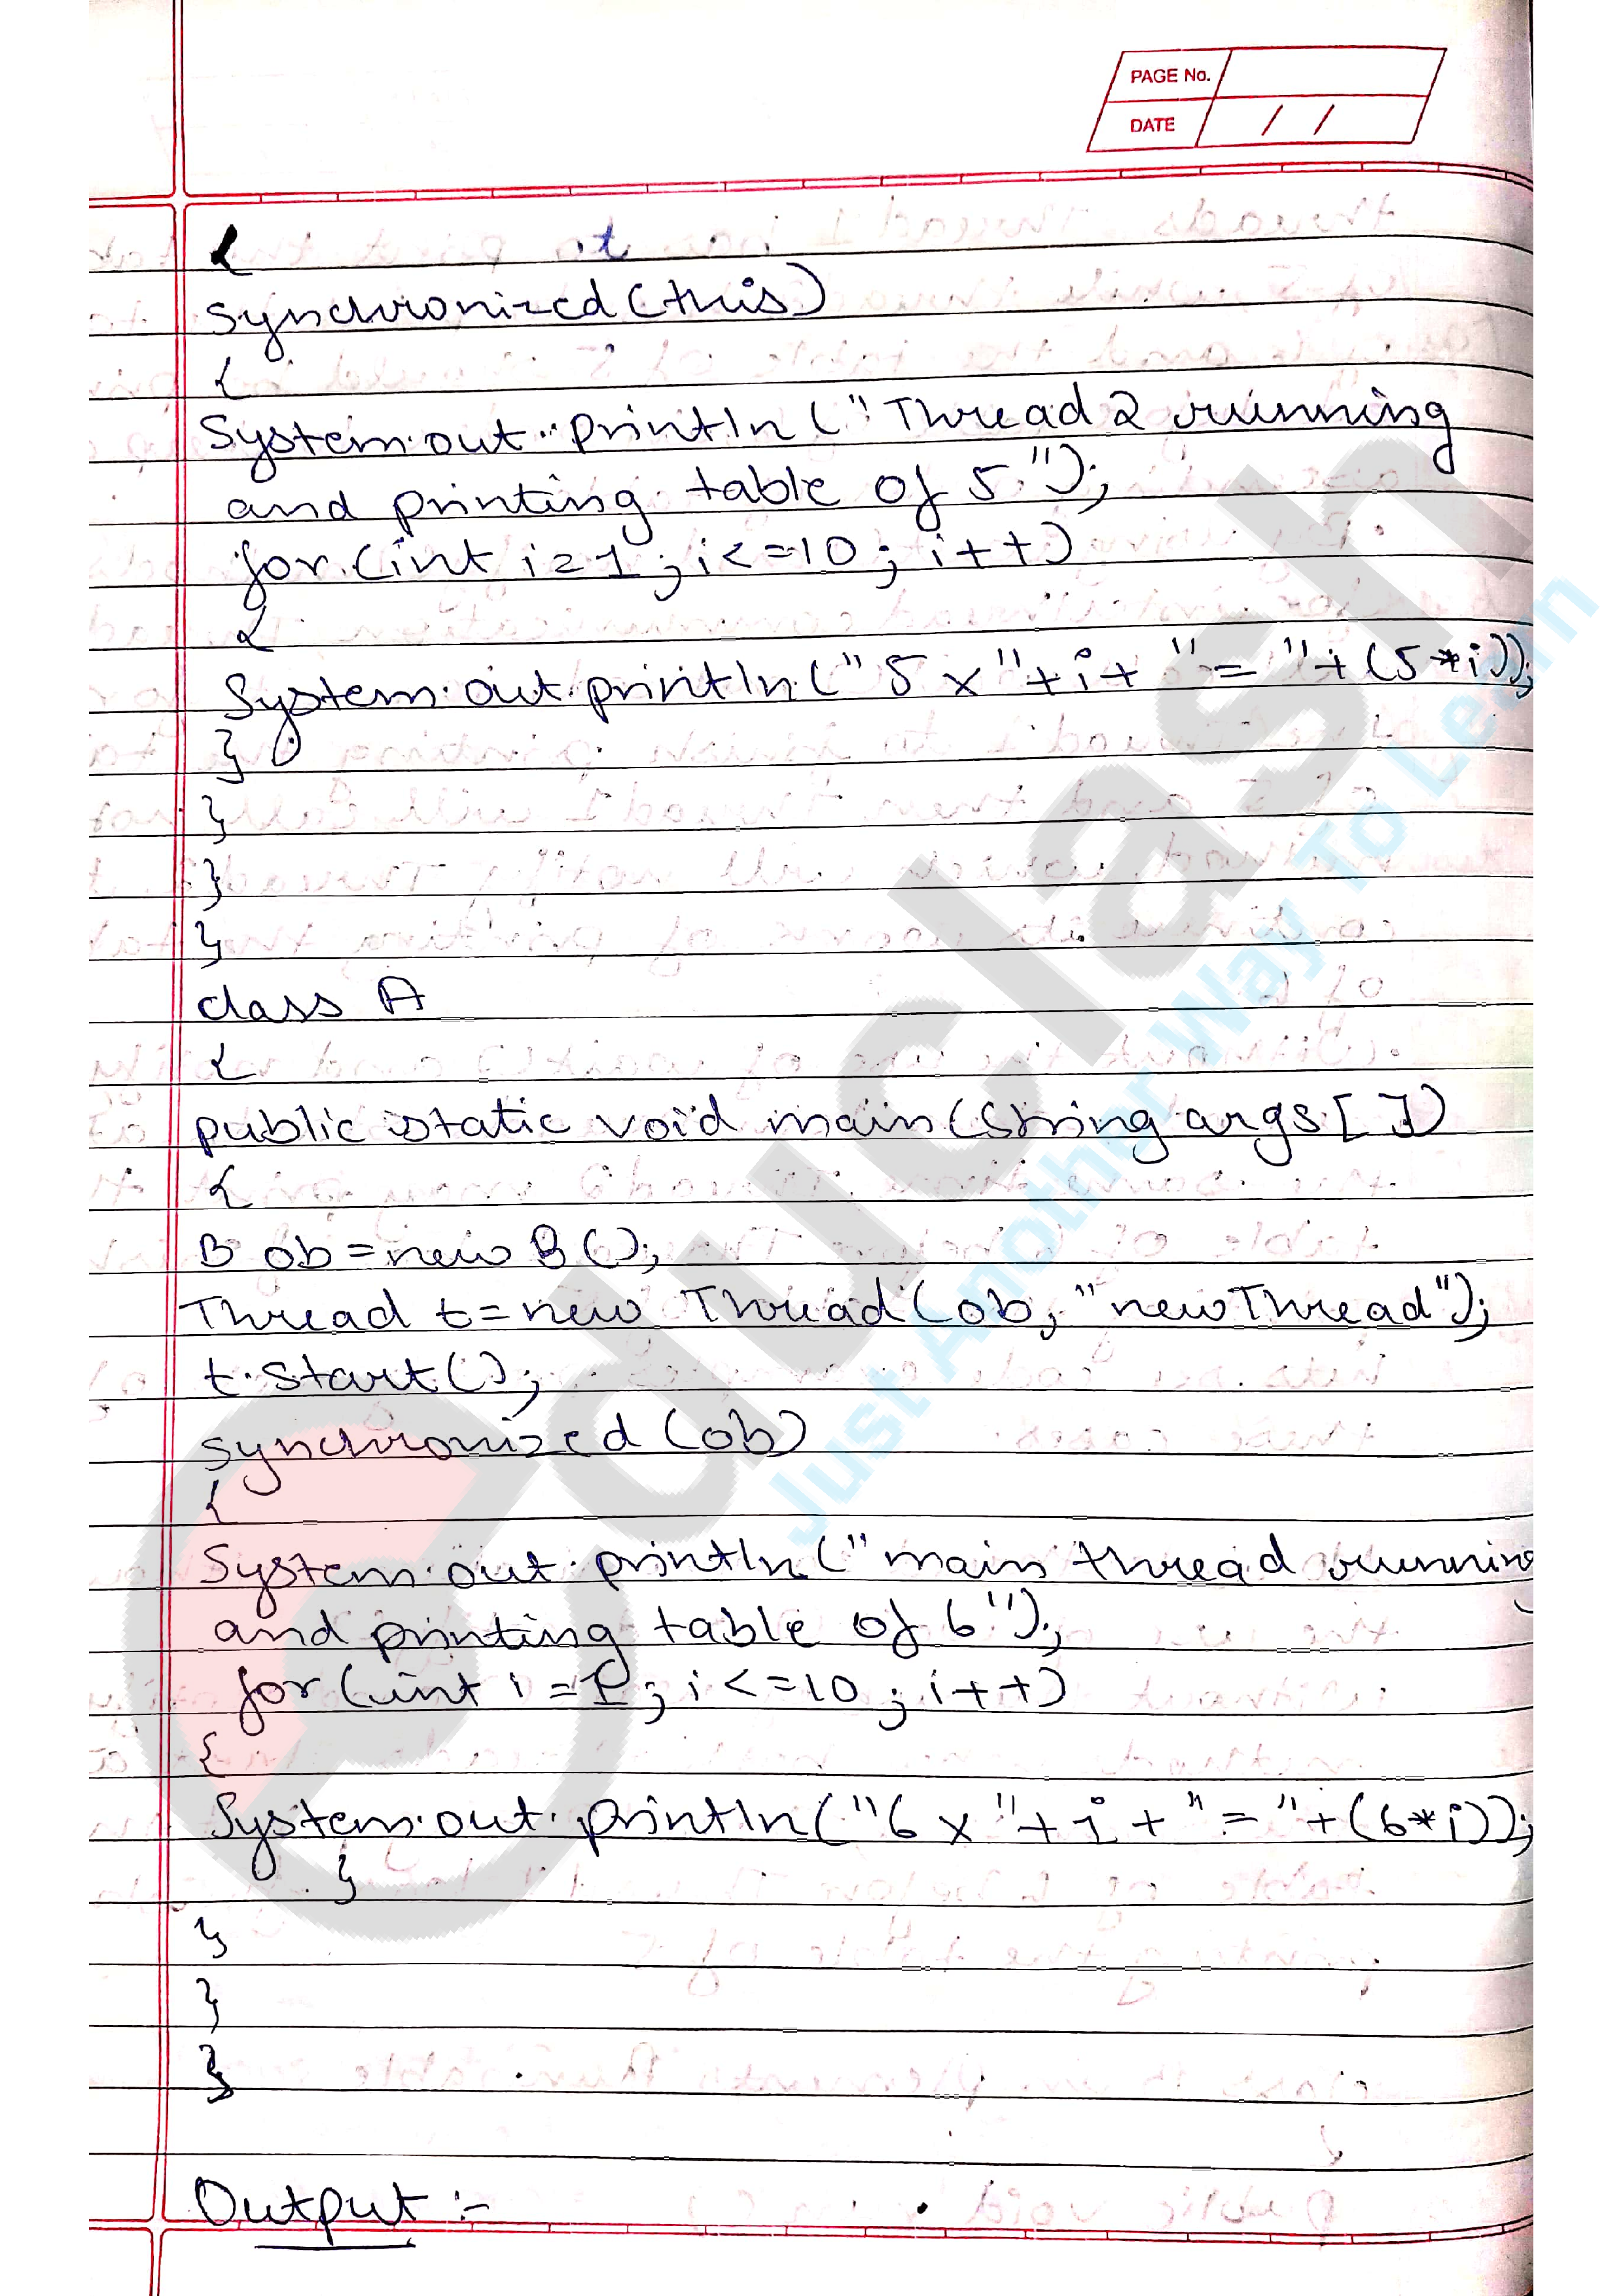 PAGE No.
DATE / /
{ t
synchronized(this)
{
System.out.println("Thread 2 running
and printing table of 5");
for(int i=1; i<=10; i++)
{
System.out.println("5 x"+i+ "= "+(5*i));
}
}
}
}
class A
{
public static void main(String args[])
{
B ob=new B();
Thread t=new Thread(ob, "newThread");
t.start();
synchronized (ob)
{
System.out.println("main thread running
and printing table of 6");
for(int i=1; i<=10; i++)
{
System.out.println("6 x"+i+"="+(6*i));
}
}
}
}
Output :-
educlash
Just Another Way To Learn